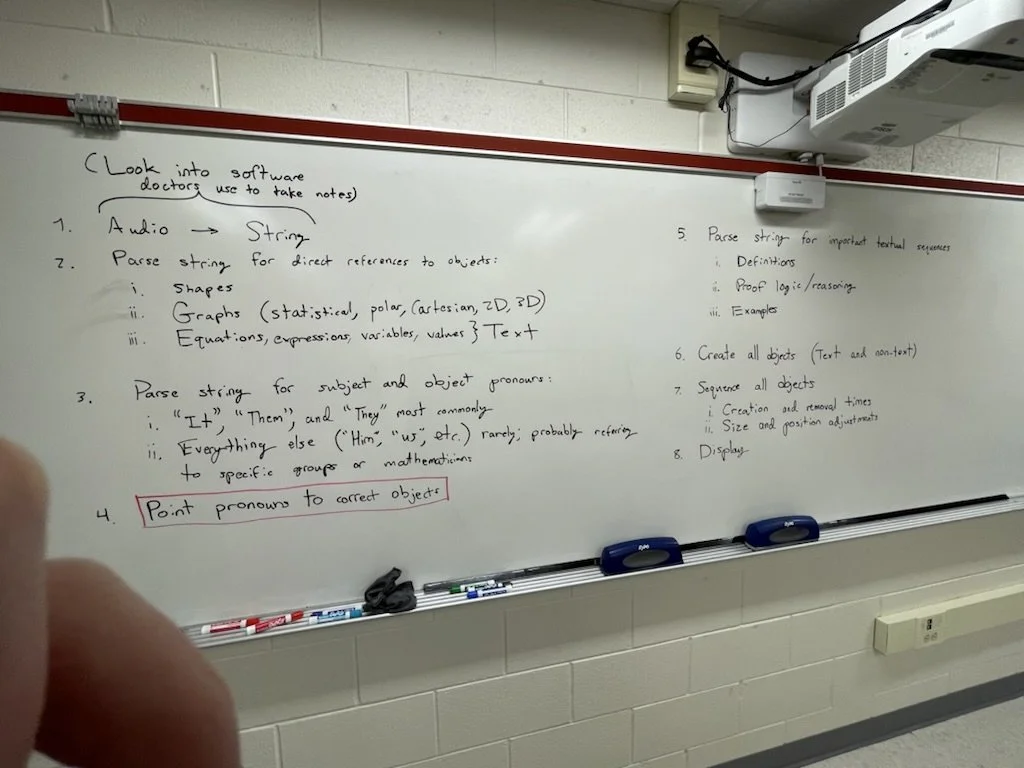 (Look into software
doctors use to take notes)
1. Audio → String
2. Parse string for direct references to objects:
i. Shapes
ii. Graphs (statistical, polar, Cartesian, 2D, 3D)
iii. Equations, expressions, variables, values } Text
3. Parse string for subject and object pronouns:
i. "It", "Them", and "They" most commonly
ii. Everything else ("Him", "us", etc.) rarely; probably referring
to specific groups or mathematicians
4. Point pronouns to correct objects
5. Parse string for important textual sequences
i. Definitions
ii. Proof logic/reasoning
iii. Examples
6. Create all objects (Text and non-text)
7. Sequence all objects
i. Creation and removal times
ii. Size and position adjustments
8. Display
EXPO
EXPO
EPSON